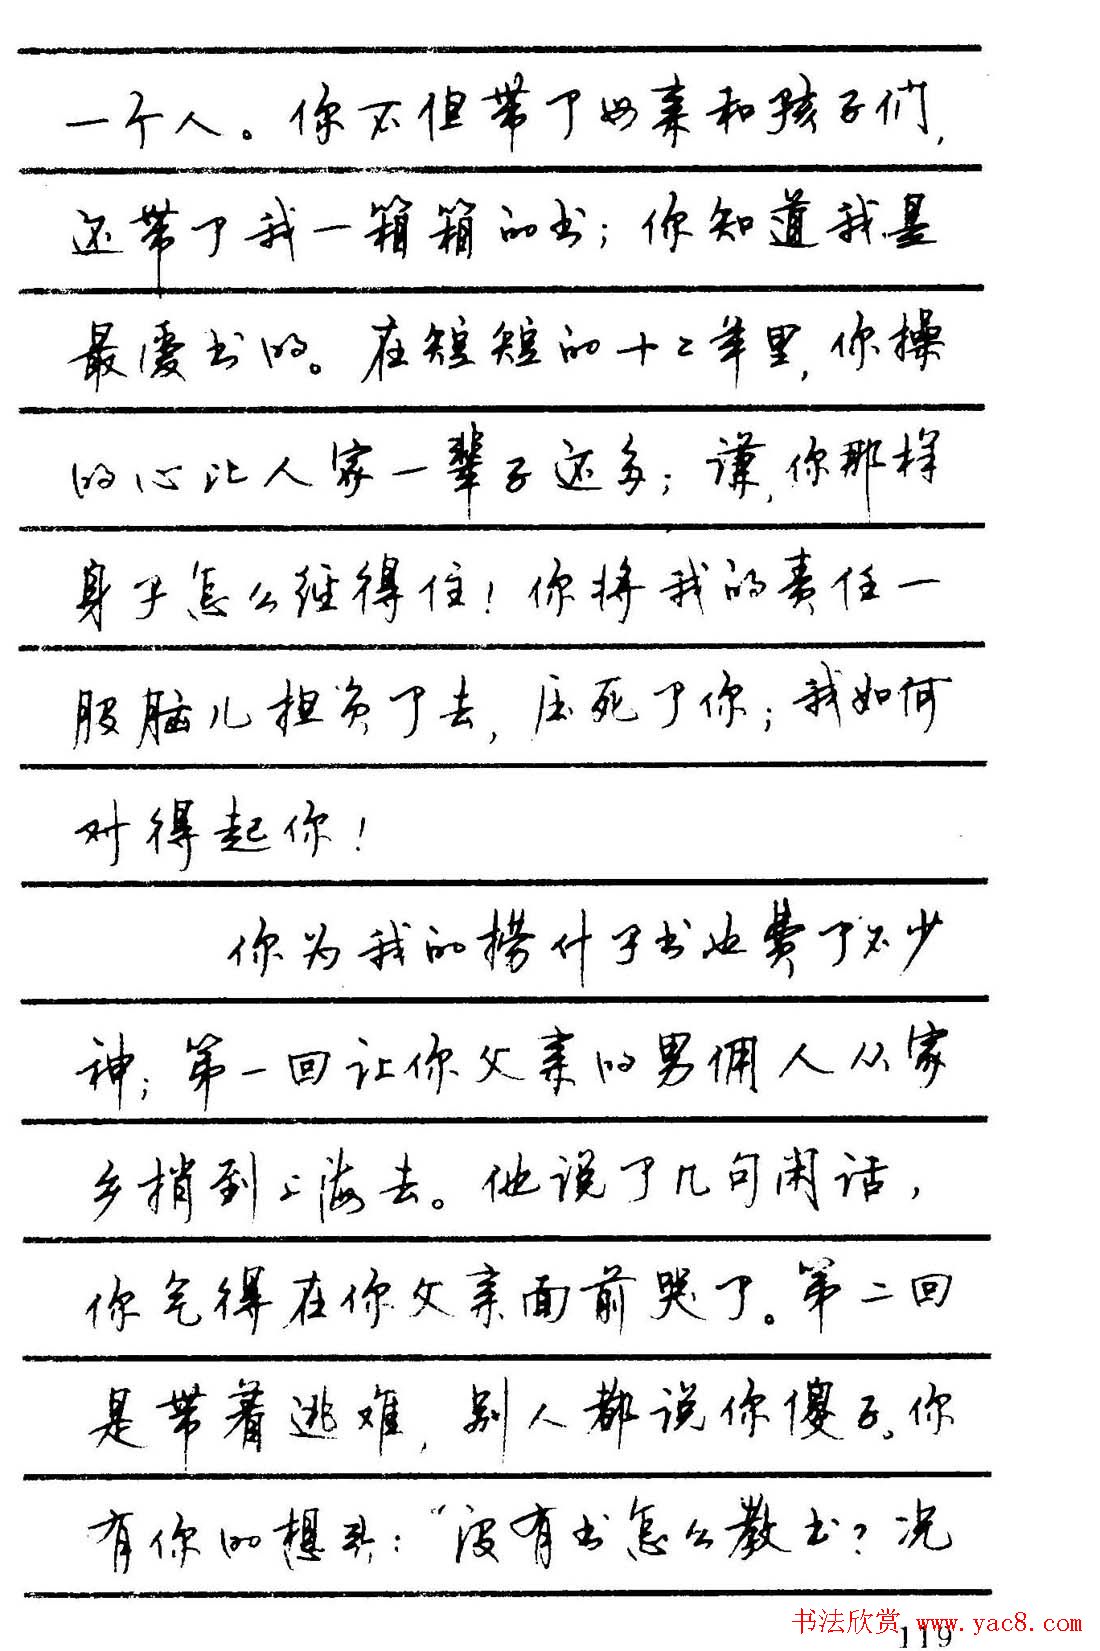 一个人。你不但带了母亲和孩子们,
还带了我一箱箱的书；你知道我是
最爱书的。在短短的十二年里,你操
的心比人家一辈子还多；谦,你那样
身子怎么经得住！你将我的责任一
股脑儿担负了去,压死了你；我如何
对得起你！
你为我的捞什子书也费了不少
神；第一回让你父亲的男佣人从家
乡捎到上海去。他说了几句闲话,
你气得在你父亲面前哭了。第二回
是带着逃难,别人都说你傻子。你
有你的想头：“没有书怎么教书？况
书法欣赏 www.yac8.com
119